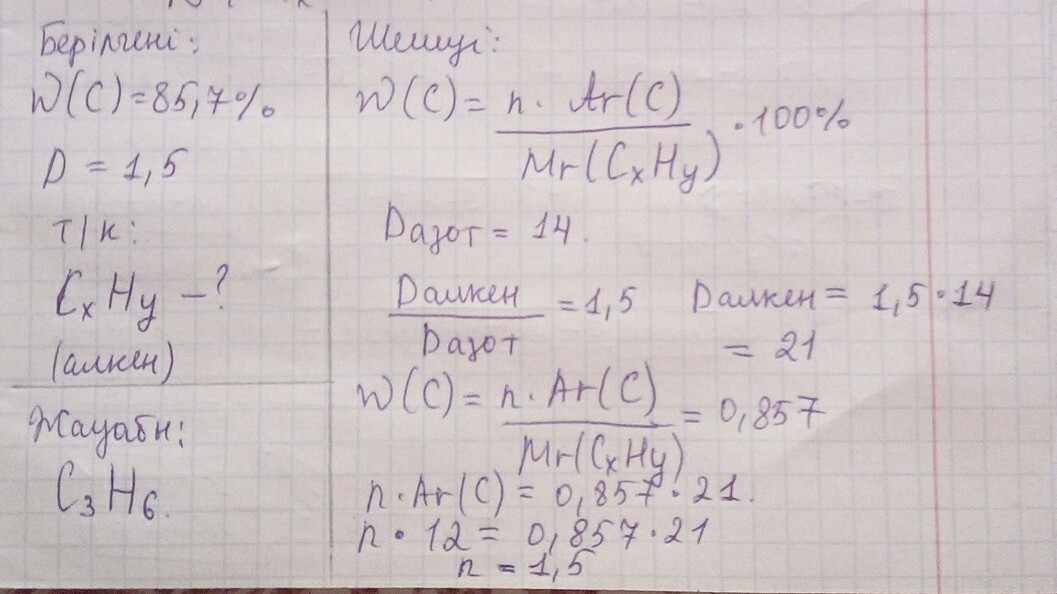 Берілгені:
W(C)=85,7%
D = 1,5
т/к:
CxHy –?
(алкен)
Жауабы:
C₃H₆.
Шешуі:
W(C) = n · Ar(C) / Mr(CxHy) · 100%
Dазот = 14.
Dалкен / Dазот = 1,5 Dалкен = 1,5 · 14
= 21
W(C) = n · Ar(C) / Mr(CxHy) = 0,857
n · Ar(C) = 0,857 · 21.
n · 12 = 0,857 · 21
n = 1,5